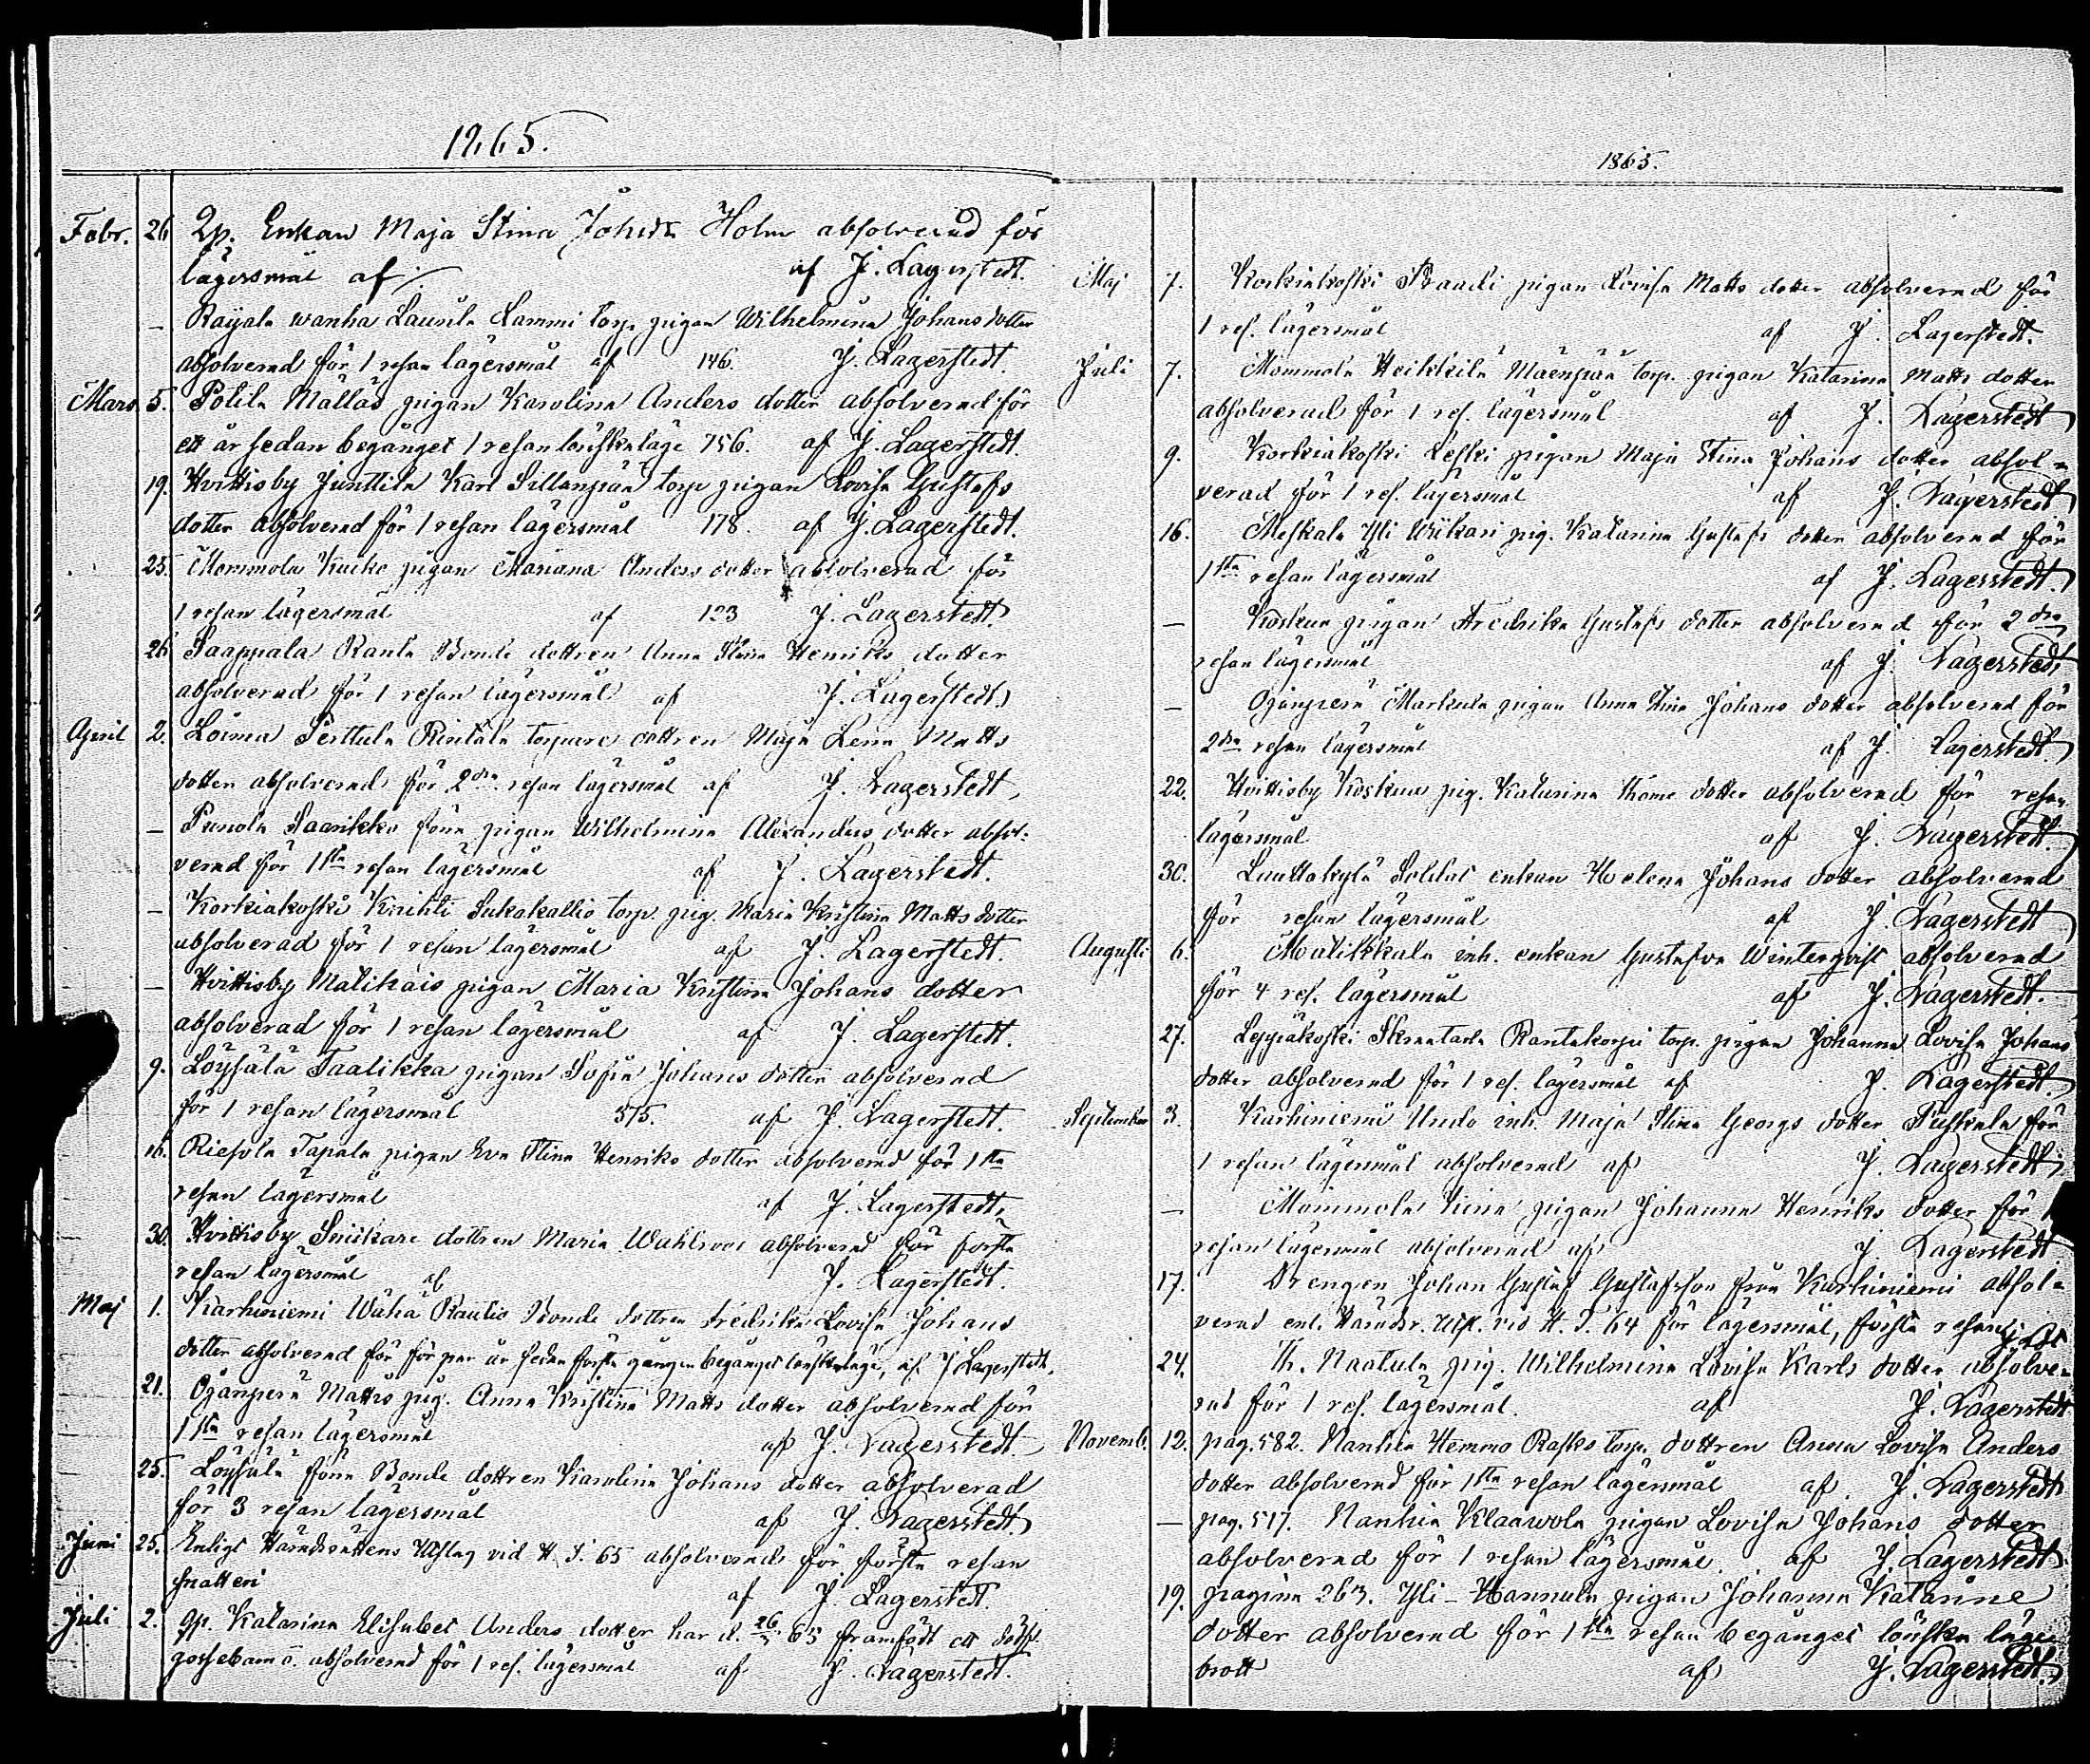 1865.
Febr. 26. Qp. Enkan Maja Stina Johsdr Holm absolverad för
lägersmål af ⁒ af J. Lagerstedt.
— Raijala wanha Laurila Lammi torp. pigan Wilhelmina Johans dotter
absolverad för 1 resan lägersmål af 146. J. Lagerstedt.
Mars 5. Pohila Mälläs pigan Karolina Anders dotter absolverad för
ett år sedan begånget 1 resan lönskaläge 756. af J. Lagerstedt.
19. Hvittisby Junttila Karl Sillanpää torp pigan Lovisa Gustafs
dotter absolverad för 1 resan lägersmål 178. af J. Lagerstedt.
25. Mommola Kucko pigan Mariana Anders dotter absolverad för
1 resan lägersmål af 123 J. Lagerstedt
26. Saappala Ranta Bonde dottren Anna Stina Henriks dotter
absolverad för 1 resan lägersmål af J. Lagerstedt
April 2. Loima Perttula Rintala torpare dottren Maja Lena Matts
dotter absolverad för 2dra resan lägersmål af J. Lagerstedt
— Punola Saarikko föna pigan Wilhelmina Alexanders dotter absol-
verad för 1sta resan lägersmål af J. Lagerstedt.
— Korkiakoski Knihti Sukakallio torp. pig. Maria Kristina Matts dotter
absolverad för 1 resan lägersmål af J. Lagerstedt.
— Hvittisby Malikais pigan Maria Kristina Johans dotter
absolverad för 1 resan lägersmål af J. Lagerstedt.
9. Löysälä Taalikka pigan Sofia Johans dotter absolverad
för 1 resan lägersmål 515. af J. Lagerstedt.
16. Riesola Tapala pigan Eva Stina Henriks dotter absolverad för 1sta
resan lägersmål af J. Lagerstedt.
30. Hvittisby Snickare dottren Maria Wahlroos absolverad för första
resan lägersmål af J. Lagerstedt.
Maj 1. Karhiniemi Wähä Raulio Bonde dottren Fredrika Lovisa Johans
dotter absolverad för för par år sedan första gången begånget lönskaläge, af J. Lagerstedt.
21. Ojänperä Matts pig. Anna Kristina Matts dotter absolverad för
1sta resan lägersmål af J. Lagerstedt
25. Löysälä föna Bonde dottren Karolina Johans dotter absolverad
för 3 resan lägersmål af J. Lagerstedt.
Juni 25. Enligt Häradsrättens Utslag vid H. T. 65 absolverad för första resan
snatteri af J. Lagerstedt.
Juli 2. Qp. Katarina Elisabet Anders dotter har d. 26/5 65 framfödt ett dödf.
gossebarn o. absolverad för 1 res. lägersmål af J. Lagerstedt.
1865.
Maj 7. Korkiakoski Raadi pigan Lovisa Matts dotter absolverad för
1 res. lägersmål af J. Lagerstedt.
Juli 7. Mommola Heikkilä Mäenpää torp. pigan Katarina Matts dotter
absolverad för 1 res. lägersmål af J. Lagerstedt
9. Korkiakoski Leski pigan Maja Stina Johans dotter absol-
verad för 1 res. lägersmål af J. Lagerstedt
16. Meskala Yli Wiikari pig. Katarina Gustafs dotter absolverad för
1sta resan lägersmål af J. Lagerstedt.
— Koskua pigan Fredrika Gustafs dotter absolverad för 2dra
resan lägersmål af J. Lagerstedt
— Ojänperä Markula pigan Anna Stina Johans dotter absolverad för
2dra resan lägersmål af J. Lagerstedt
22. Hvittisby Koskua pig. Katarina Thome dotter absolverad för resan
lägersmål af J. Lagerstedt.
30. Lauttakylä Soldat enkan Helena Johans dotter absolverad
för resan lägersmål af J. Lagerstedt
Augusti 6. Mulikkala inh. enkan Gustafva Winterqvist absolverad
för 4 res. lägersmål af J. Lagerstedt.
27. Leppäkoski Skraatarla Rantakorpi torp. pigan Johanna Lovisa Johans
dotter absolverad för 1 res. lägersmål af J. Lagerstedt.
September 3. Karhiniemi Undo inh. Maja Stina Georgs dotter för
1 resan lägersmål absolverad af J. Lagerstedt
— Mommola pigan Johanna Henriks dotter för 1
resan lägersmål absolverad af J. Lagerstedt
17. Drengen Johan Gustaf Gustafsson från Karhiniemi absol-
verad enl. Häradsr. Utsl. vid H. T. 64 för lägersmål, första resan
24. Th. Naatula pig. Wilhelmina Lovisa Karls dotter absolve-
rad för 1 res. lägersmål. af J. Lagerstedt
Novemb. 12. pag. 582. Nanhia Hemmo Rasko torp. dottren Anna Lovisa Anders
dotter absolverad för 1sta resan lägersmål af J. Lagerstedt
— pag. 517. Nanhia Klaawola pigan Lovisa Johans dotter
absolverad för 1 resan lägersmål. af J. Lagerstedt
19. pagina 263. Yli-Hannula pigan Johanna Katarine
dotter absolverad för 1sta resan begånget lönska läge
brott af J. Lagerstedt